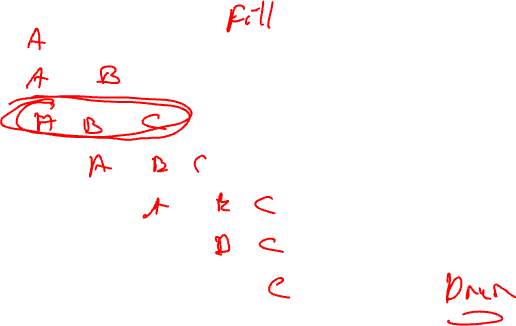 Fill
A
A B
A B C
A B C
A B C
B C
C
Drain